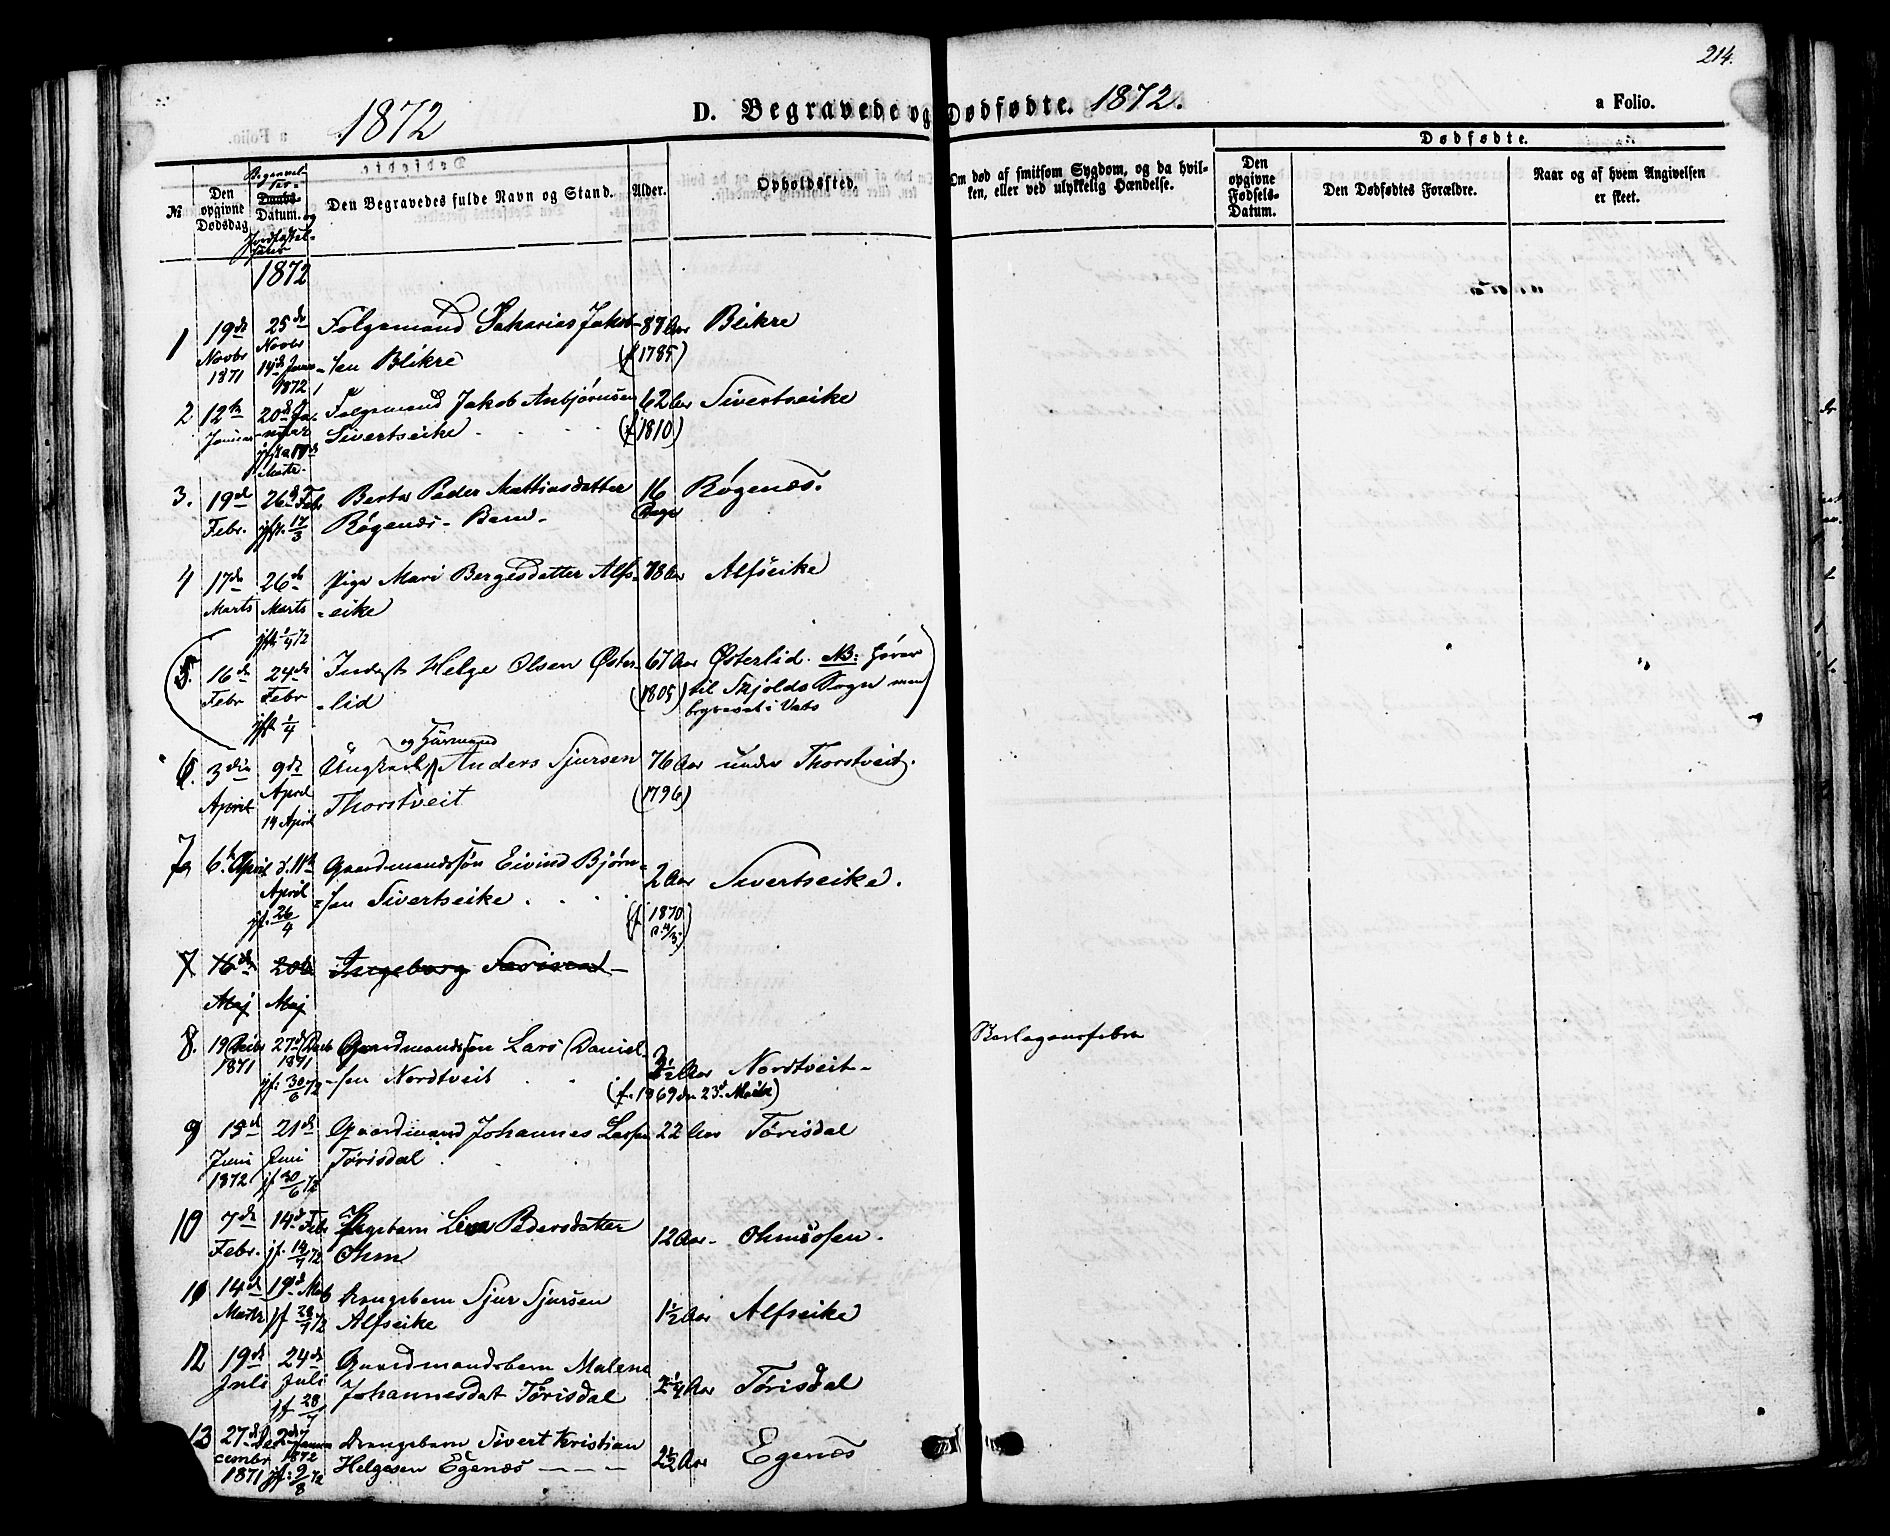 214.
1872
D. Begravede og Dødfødte. 1872.
a Folio.
Dødfødte.
№
Den opgivne Dødsdag
Begravelses-
Daabs-
Datum. og
Jordfæstelse
Den Begravedes fulde Navn og Stand.
Alder.
Opholdssted.
Om død af smitsom Sygdom, og da hvilken, eller ved ulykkelig Hændelse.
Den opgivne Fødsels-Datum.
Den Dødfødtes Forældre.
Naar og af hvem Angivelsen er skeet.
1872
1 19de 25de Folgemand Sakarias Jakob- 87 Aar Blikre
Novbr Novbr -sen Blikre (f 1785)
1871 14de Januar
1872
2 12te 20de Ja- Folgemand Jakob Anbjørnsen 62 Aar Sivertseike
Januar -nuar Sivertseike (f 1810)
Marts
3. 19de 26de Febr Berta Peder Mathiasdatter 16 Røgenæs.
Febr. jfst. 17/3 Røgenæs- Barn- Dage
4 17de 26de Pige Mari Bergesdatter Alfs- 78 Aar Alfseike
Marts Marts -eike
jfst 1/4 72
5. 16de 24de Inderst Helge Olsen Øster- 67 Aar Østerlid. NB: hører
Febr Febr -lid (1805) til Skjolds Sogn men
jfst 1/4 begravet i Vats
og Huusmand
6. 3die 9de Ungkarl Anders Sjursen 76 Aar under Thorstveit.
April April Thorstveit (1796)
14 April
7a 6te April d. 11te Gaardmandssøn Eivind Bjørn- 2 Aar Sivertseike.
April -sen Sivertseike (f 1870
jf. 26/4 d. 4/3)
7 16de 20de Ingeborg
Maj Maj
8. 19 Decbr 27de Decb Gaardmandssøn Lars Daniel- 2½ Aar Nordtveit-
1871 1871 -sen Nordtveit
jf: 30/6 72 (f. 1869 den 23de Marts)
Barlagensfeber
9 15de 21de Gaardmand Johannes Larsen 22 Aar Tørisdal
Juni Juni Tørisdal
1872 jf 30/6 72
10 7de 14de Febr Pigebarn Lina Pedersdatter 12 Aar- Ohmsosen.
Febr. jf. 14/7 72 Ohm
11 14de 19de Mats Drengebarn Sjur Sjursen 1½ Aar Alfseike
Marts jf 28/7 72 Alfseike
12 19de 24de Gaardmandsbarn Malene 2¼ Aar Tørisdal
Juli Juli Johannesdat Tørisdal
jf 28/7
13 27de De- 2de Januar Drengebarn Sivert Kristian 2½ Aar Egenæs
cembr 1872 Helgesen Egenæs
1871 jf: 9/8 72